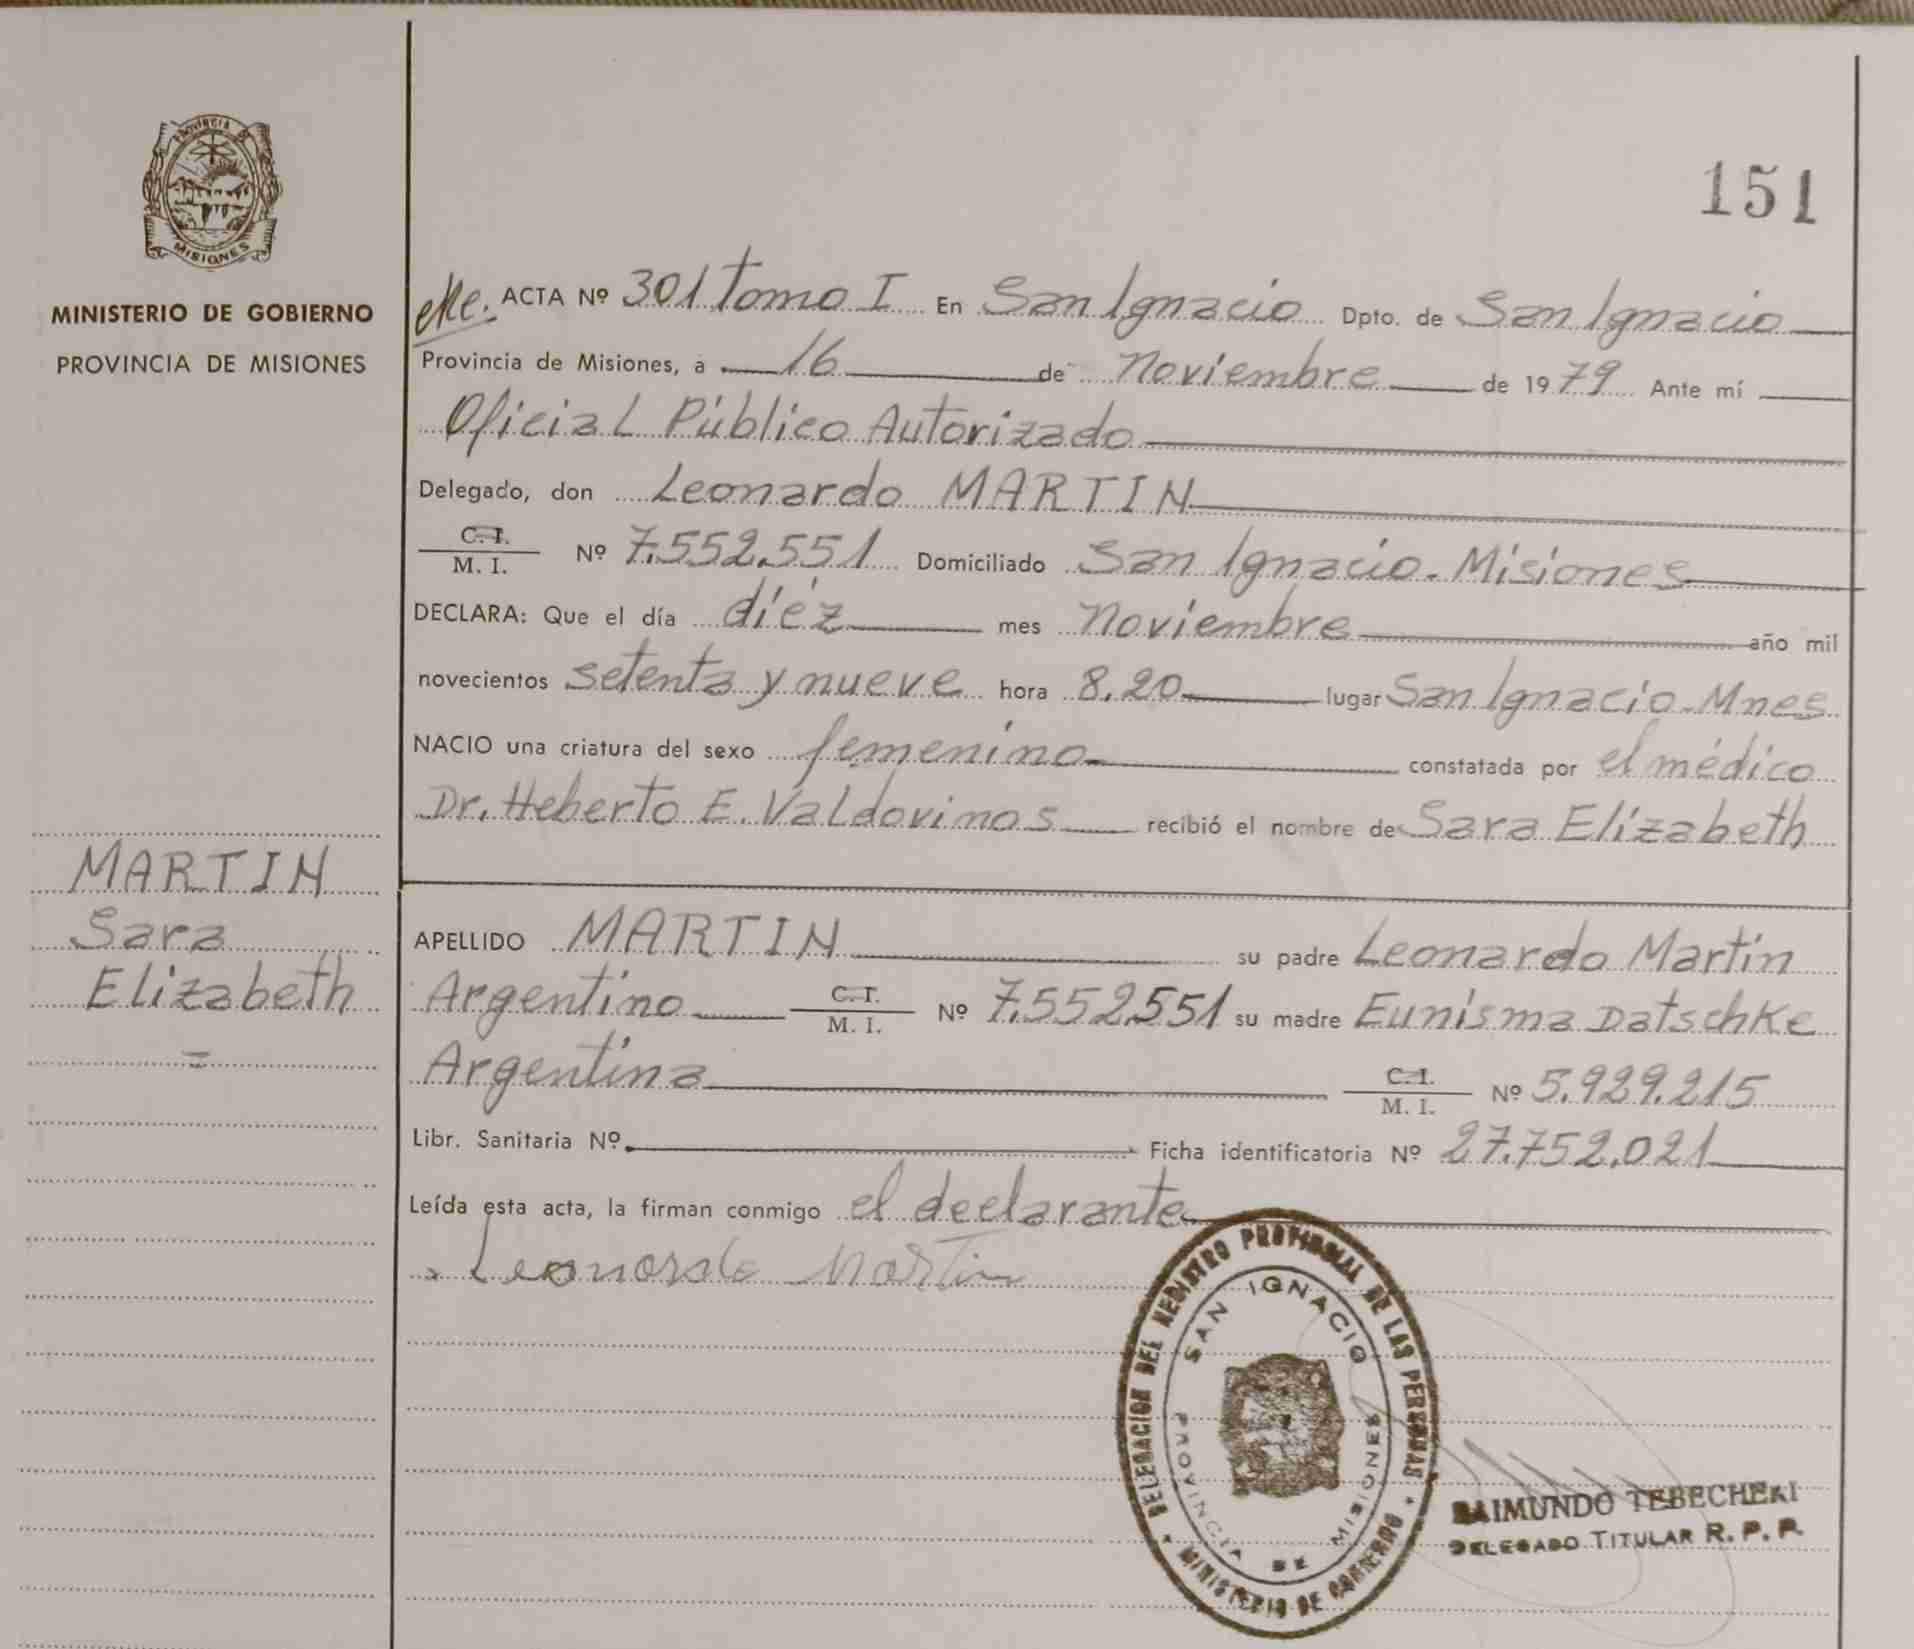 PROVINCIA DE
MISIONES
MINISTERIO DE GOBIERNO
PROVINCIA DE MISIONES
MARTIN
Sara
Elizabeth
=
151
ACTA Nº 301 Tomo I En San Ignacio Dpto. de San Ignacio
Provincia de Misiones, a 16 de Noviembre de 1979 Ante mí
Oficial Público Autorizado
Delegado, don Leonardo MARTIN
C. I. / M. I. Nº 7.552.551 Domiciliado San Ignacio - Misiones
DECLARA: Que el día diéz mes Noviembre año mil
novecientos setenta y nueve hora 8.20 lugar San Ignacio - Mnes
NACIO una criatura del sexo femenino constatada por el médico
Dr. Heberto E. Valdovinos recibió el nombre de Sara Elizabeth
APELLIDO MARTIN su padre Leonardo Martín
Argentino C. I. / M. I. Nº 7.552.551 su madre Eunisma Datschke
Argentina C. I. / M. I. Nº 5.929.215
Libr. Sanitaria Nº Ficha identificatoria Nº 27.752.021
Leída esta acta, la firman conmigo el declarante
Leonardo Martin
DELEGACION DEL REGISTRO PROVINCIAL DE LAS PERSONAS
MINISTERIO DE GOBIERNO
SAN IGNACIO
PROVINCIA DE MISIONES
RAIMUNDO TEBECHERI
DELEGADO TITULAR R. P. P.